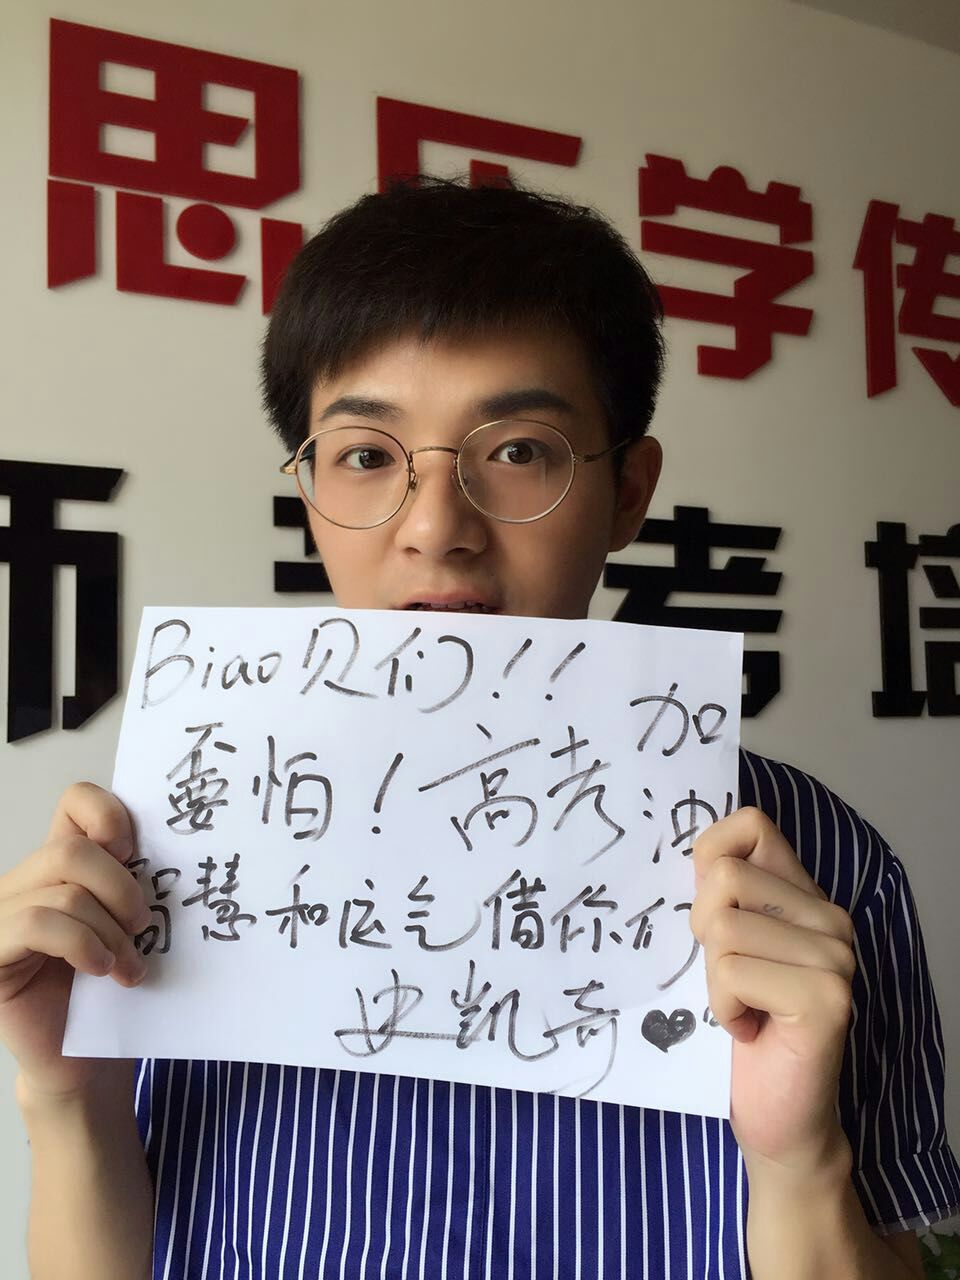 思 学传
师 考培
Biao贝们！！
嫑怕！高考加油！
智慧和运气借你们
史凯奇